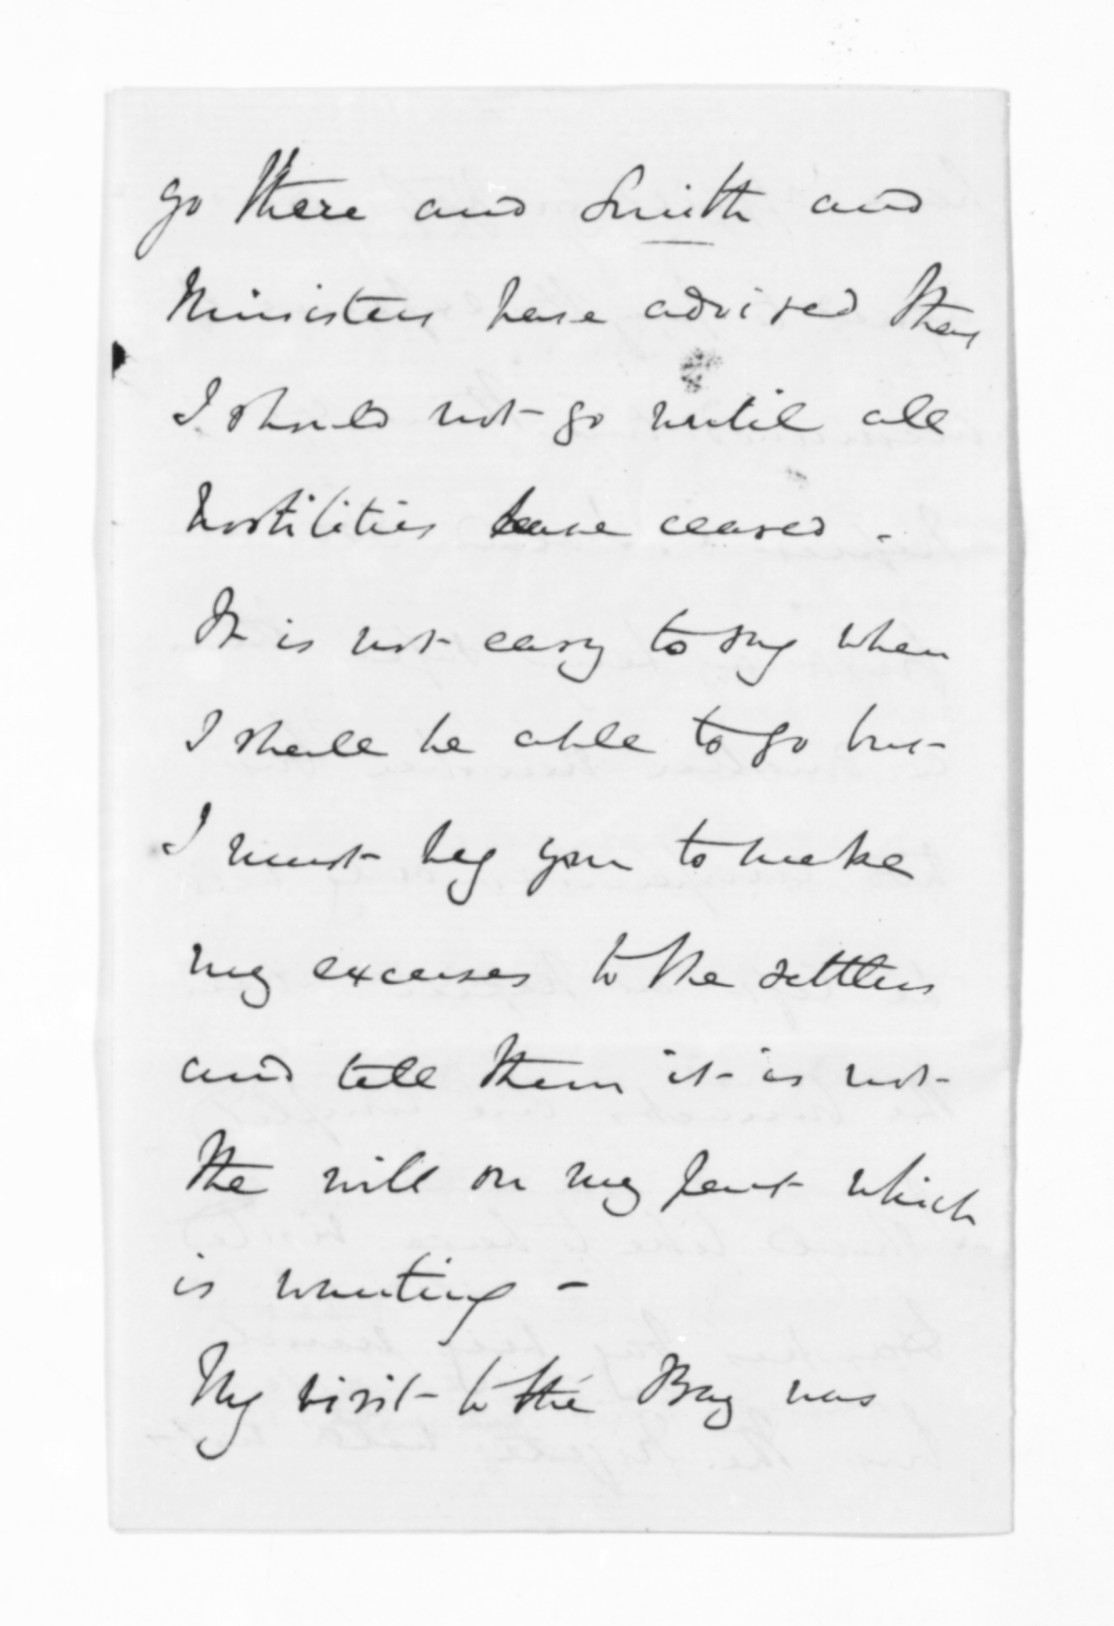 go there and Smith and
Ministers have advised that
I should not go until all
hostilities have ceased -
It is not easy to say when
I shall be able to go but
I must beg you to make
my excuses to the settlers
and tell them it is not
the will on my part which
is wanting -
My visit to the Bay was